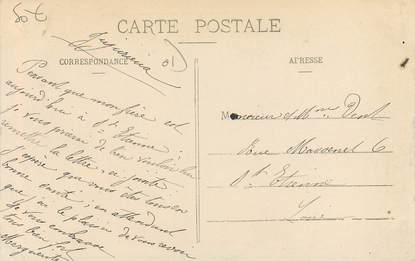 80 €
CARTE POSTALE
CORRESPONDANCE
ADRESSE
Pensant que mon frère est
aujourd'hui à St Etienne,
je vous prierai de bien vouloir lui
remettre la lettre ci jointe
j'espère que vous êtes tous en
bonne santé; en attendant
que j'ai le plaisir de vous revoir
Je vous embrasse
tous bien fort
Monsieur et Mme
Rue Massenet 6
St Etienne
Loire